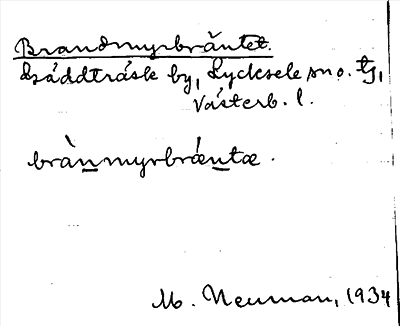 Brandmyrbräntet.
by, Lycksele sn o. tg,
Västerb. l.
brànmyrbrǽntæ.
M. Neuman, 1934